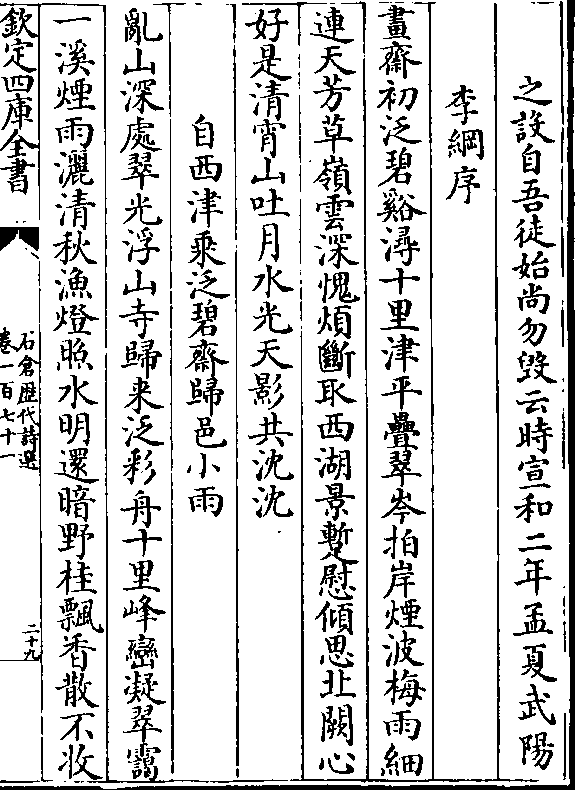 之設自吾徒始尚勿毀云時宣和二年孟夏武陽
李綱序
畫齋初泛碧谿潯十里津平疊翠岑拍岸煙波梅雨細
連天芳草嶺雲深愧煩斷取西湖景蹔慰傾思北闕心
好是清宵山吐月水光天影共沈沈
自西津乘泛碧齋歸邑小雨
亂山深處翠光浮山寺歸来泛彩舟十里峰巒凝翠靄
一溪煙雨灑清秋漁燈照水明還暗野桂飄香散不收
欽定四庫全書
石倉歴代詩選
卷一百七十一
二十九